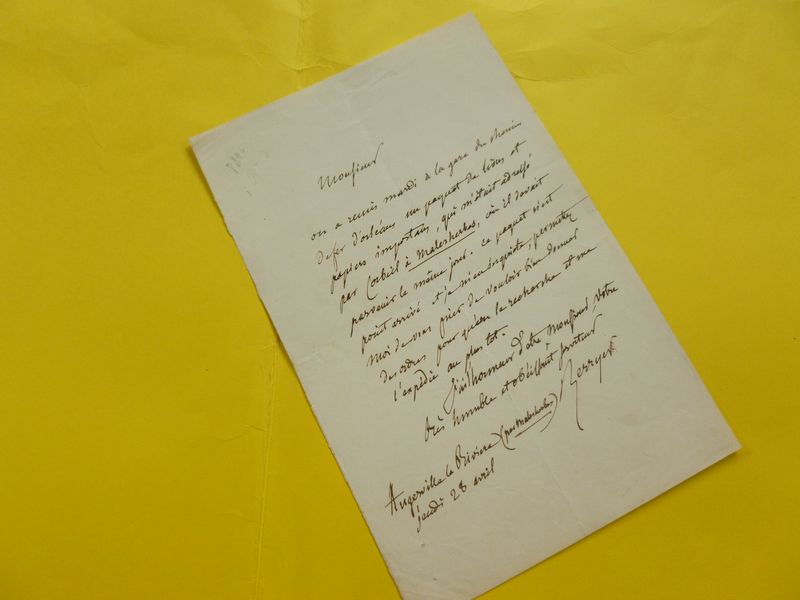 Monsieur
on a remis mardi à la gare du chemin
de fer d'orléans un paquet de livres et
papiers importans, qui m'était adressé
par Corbeil à Malesherbes, où il devait
parvenir le même jour. Ce paquet n'est
point arrivé et je m'en inquiète, permettez
moi de vous prier de vouloir bien donner
des ordres pour qu'on le recherche et me
l'expédie au plus tot.
J'ai l'honneur d'etre Monsieur, votre
très humble et obéissant serviteur
Berryer
Augerville la Rivière (par Malesherbes)
jeudi 28 avril